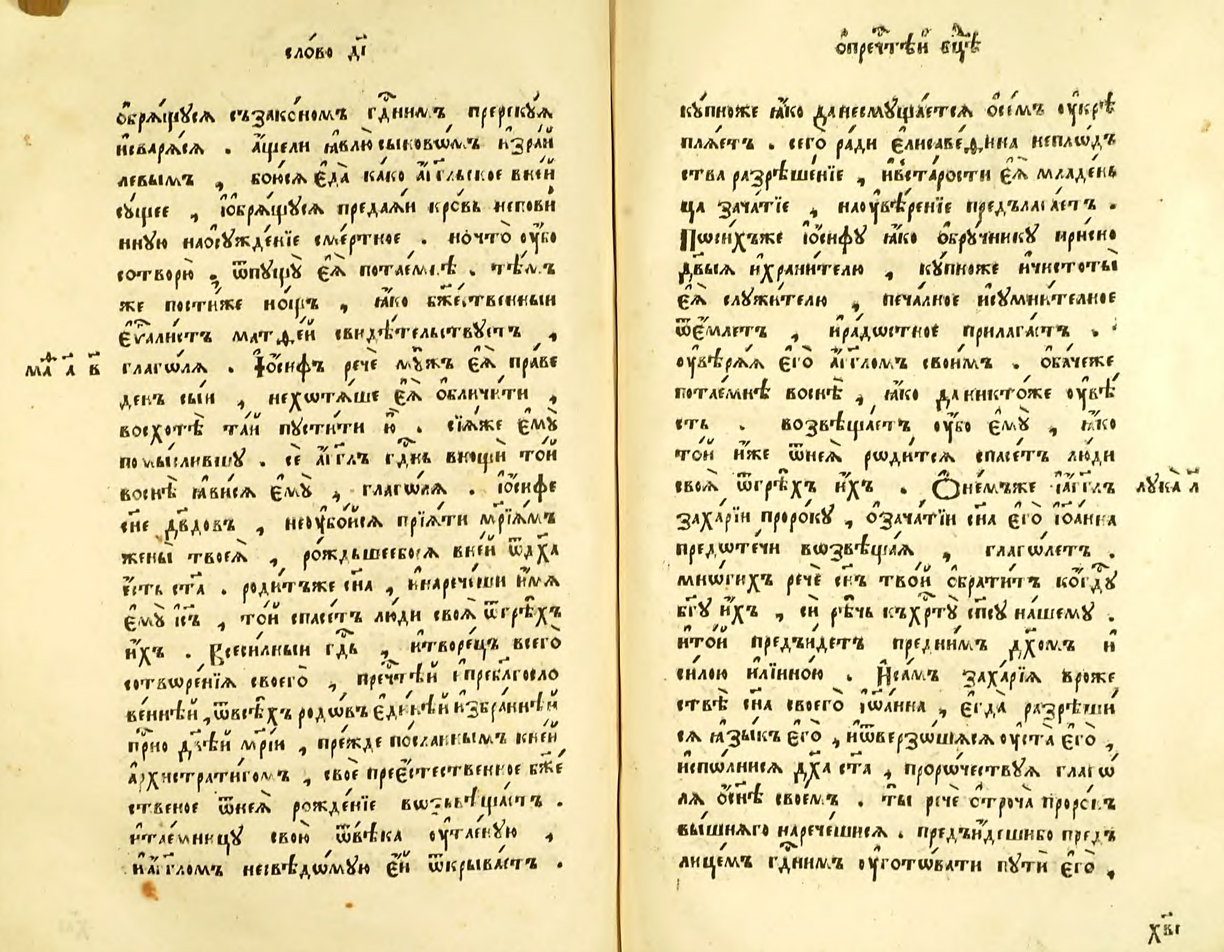 сло́во д҃і
ѻ҆брѧ́щꙋсѧ съзако́номъ гдⷭ҇нимъ пререкꙋ́ѧ
и҆сварѧ́ѧсѧ . а҆́щели ꙗ҆влю̀ сыновѡ́мъ и҆зра́и
левымъ , бою́сѧ є҆да̀ ка́ко а҆́гг҃льское вне́й
сꙋ́щее , і҆ѻ҆брѧ́щꙋсѧ преда́ѧи кро́вь непови́
ннꙋю наѻ҆сꙋжде́нїе сме́ртное . но̀что̀ ᲂу҆́бо
сотворю̀ , ѿпꙋщꙋ̀ є҆ѧ̀ пота́емнѣ . тѣ́мъ
же пости́же но́щь , ꙗ҆́ко бж҃е́ственныи
є҆ѵⷢ҇али́стъ матѳе́й свидѣ́тельствꙋетъ ,
глаго́лѧ . І҆ѻ́сифъ речѐ мꙋ́жъ є҆ѧ̀ пра́ве
денъ сы́и , нехотѧ́ше є҆ѧ̀ ѻ҆бличи́ти ,
восхотѣ̀ та́й пꙋсти́ти ю҆̀ . сїѧ̑же є҆мꙋ̀
помы́слившꙋ . сѐ а҆́гг҃лъ гдⷭ҇нь вно́щи то́й
воснѣ̀ ꙗ҆ви́сѧ є҆мꙋ̀ , глаго́лѧ . і҆ѻ́сифе
сн҃е дв҃довъ , неᲂу҆бо́йсѧ прїѧ́ти мр҃і́ѧмъ
жены̀ твоеѧ̀ , ро́ждьшеебосѧ вне́й ѿдх҃а
є҆́сть ст҃а . роди́тъже сн҃а , и҆нарече́ши и҆́мѧ
є҆мꙋ̀ і҆с҃ъ , то́й спасе́тъ лю́ди своѧ̀ ѿгрѣ̑хъ
и҆́хъ . Всеси́лныи гдⷭ҇ь , и҆творе́цъ всего̀
сотворе́нїѧ своего̀ , пречⷭ҇тѣ́й и҆преблагосло
ве́ннѣй , ѿвсѣ́хъ родѡ́въ є҆ди́нѣй и҆збра́ннѣй
пр҃но дв҃ѣй мр҃і́и , пре́жде посла́ннымъ кне́й
а҆рхистрати́гомъ , своѐ преє҆сте́ственное бж҃е́
ственое ѿнеѧ̀ рожде́нїе возвѣща́етъ .
и҆та́емницꙋ свою̀ ѿвѣ́ка ᲂу҆тае́нꙋю ,
и҆а҆́гг҃ломъ несвѣ́домꙋю є҆́й ѿкрыва́етъ .
маⷴ҇ а҃ л҃ в҃
ѻ҆пречⷭ҇тѣ́й бц҃ѣ
кꙋ́пноже ꙗ҆́ко данесмꙋща́етсѧ ѻ҆се́мъ ᲂу҆крѣ
плѧ́етъ . сего̀ ра́ди є҆лисаве́ѳина неплѡ́дъ
ства разрѣше́нїе , и҆вста́рости є҆ѧ̀ младе́нь
ца зача́тїе , наᲂу҆вѣре́нїе предълага́етъ .
Посихъже і҆ѻ́сифꙋ ꙗ҆́ко ѻ҆брꙋ́чникꙋ присно
дв҃ыѧ и҆храни́телю , кꙋ́пноже и҆чистоты̀
є҆ѧ̀ слꙋжи́телю , печа́лное и҆сꙋмни́телное
ѿе́млетъ , и҆ра́достное прилага́етъ .
ᲂу҆вѣрѧ́ѧ є҆го̀ а҆́гг҃ломъ свои́мъ . ѻ҆ба́чеже
пота́емнѣ воснѣ̀ , ꙗ҆́ко даникто́же ᲂу҆вѣ́
сть . возвѣща́етъ ᲂу҆́бо є҆мꙋ̀ , ꙗ҆́ко
то́й и҆́же ѿнеѧ̀ роди́тсѧ спасе́тъ лю́ди
своѧ̀ ѿгрѣ̑хъ и҆́хъ . Ѻ҆не́мъже і҆а҆́гг҃лъ
заха́рїи проро́кꙋ , ѻ҆зача́тїи сн҃а є҆го̀ і҆ѻа́нна
предоте́чи возвѣща́ѧ , глаго́летъ .
мно́гихъ речѐ сн҃ъ тво́й ѻ҆брати́тъ ко́гдꙋ
бг҃ꙋ и҆́хъ , си́ рѣчь къхрⷭ҇тꙋ̀ сп҃сꙋ на́шемꙋ .
и҆то́й предъи́детъ предни́мъ дх҃омъ и҆
си́лою и҆лїи́ною . И҆са́мъ заха́рїѧ врожⷣе
ствѣ̀ сн҃а своего̀ і҆ѡа́нна , є҆гда̀ разрѣши́
сѧ ꙗ҆зы́къ є҆го̀ , и҆ѿверзо́шасѧ ᲂу҆ста̀ є҆го̀ ,
и҆спо́лнисѧ дх҃а ст҃а , проро́чествꙋѧ глаго́
лѧ ѻ҆снѣ̀ свое́мъ . ты̀ речѐ ѻ҆троча̀ проро́къ
вы́шнѧго нарече́шисѧ . предъи́дешибо предъ
лице́мъ гдⷭ҇нимъ ᲂу҆гото́вати пꙋти̑ є҆го̀ ,
лꙋка̀ л҃
хв҃і